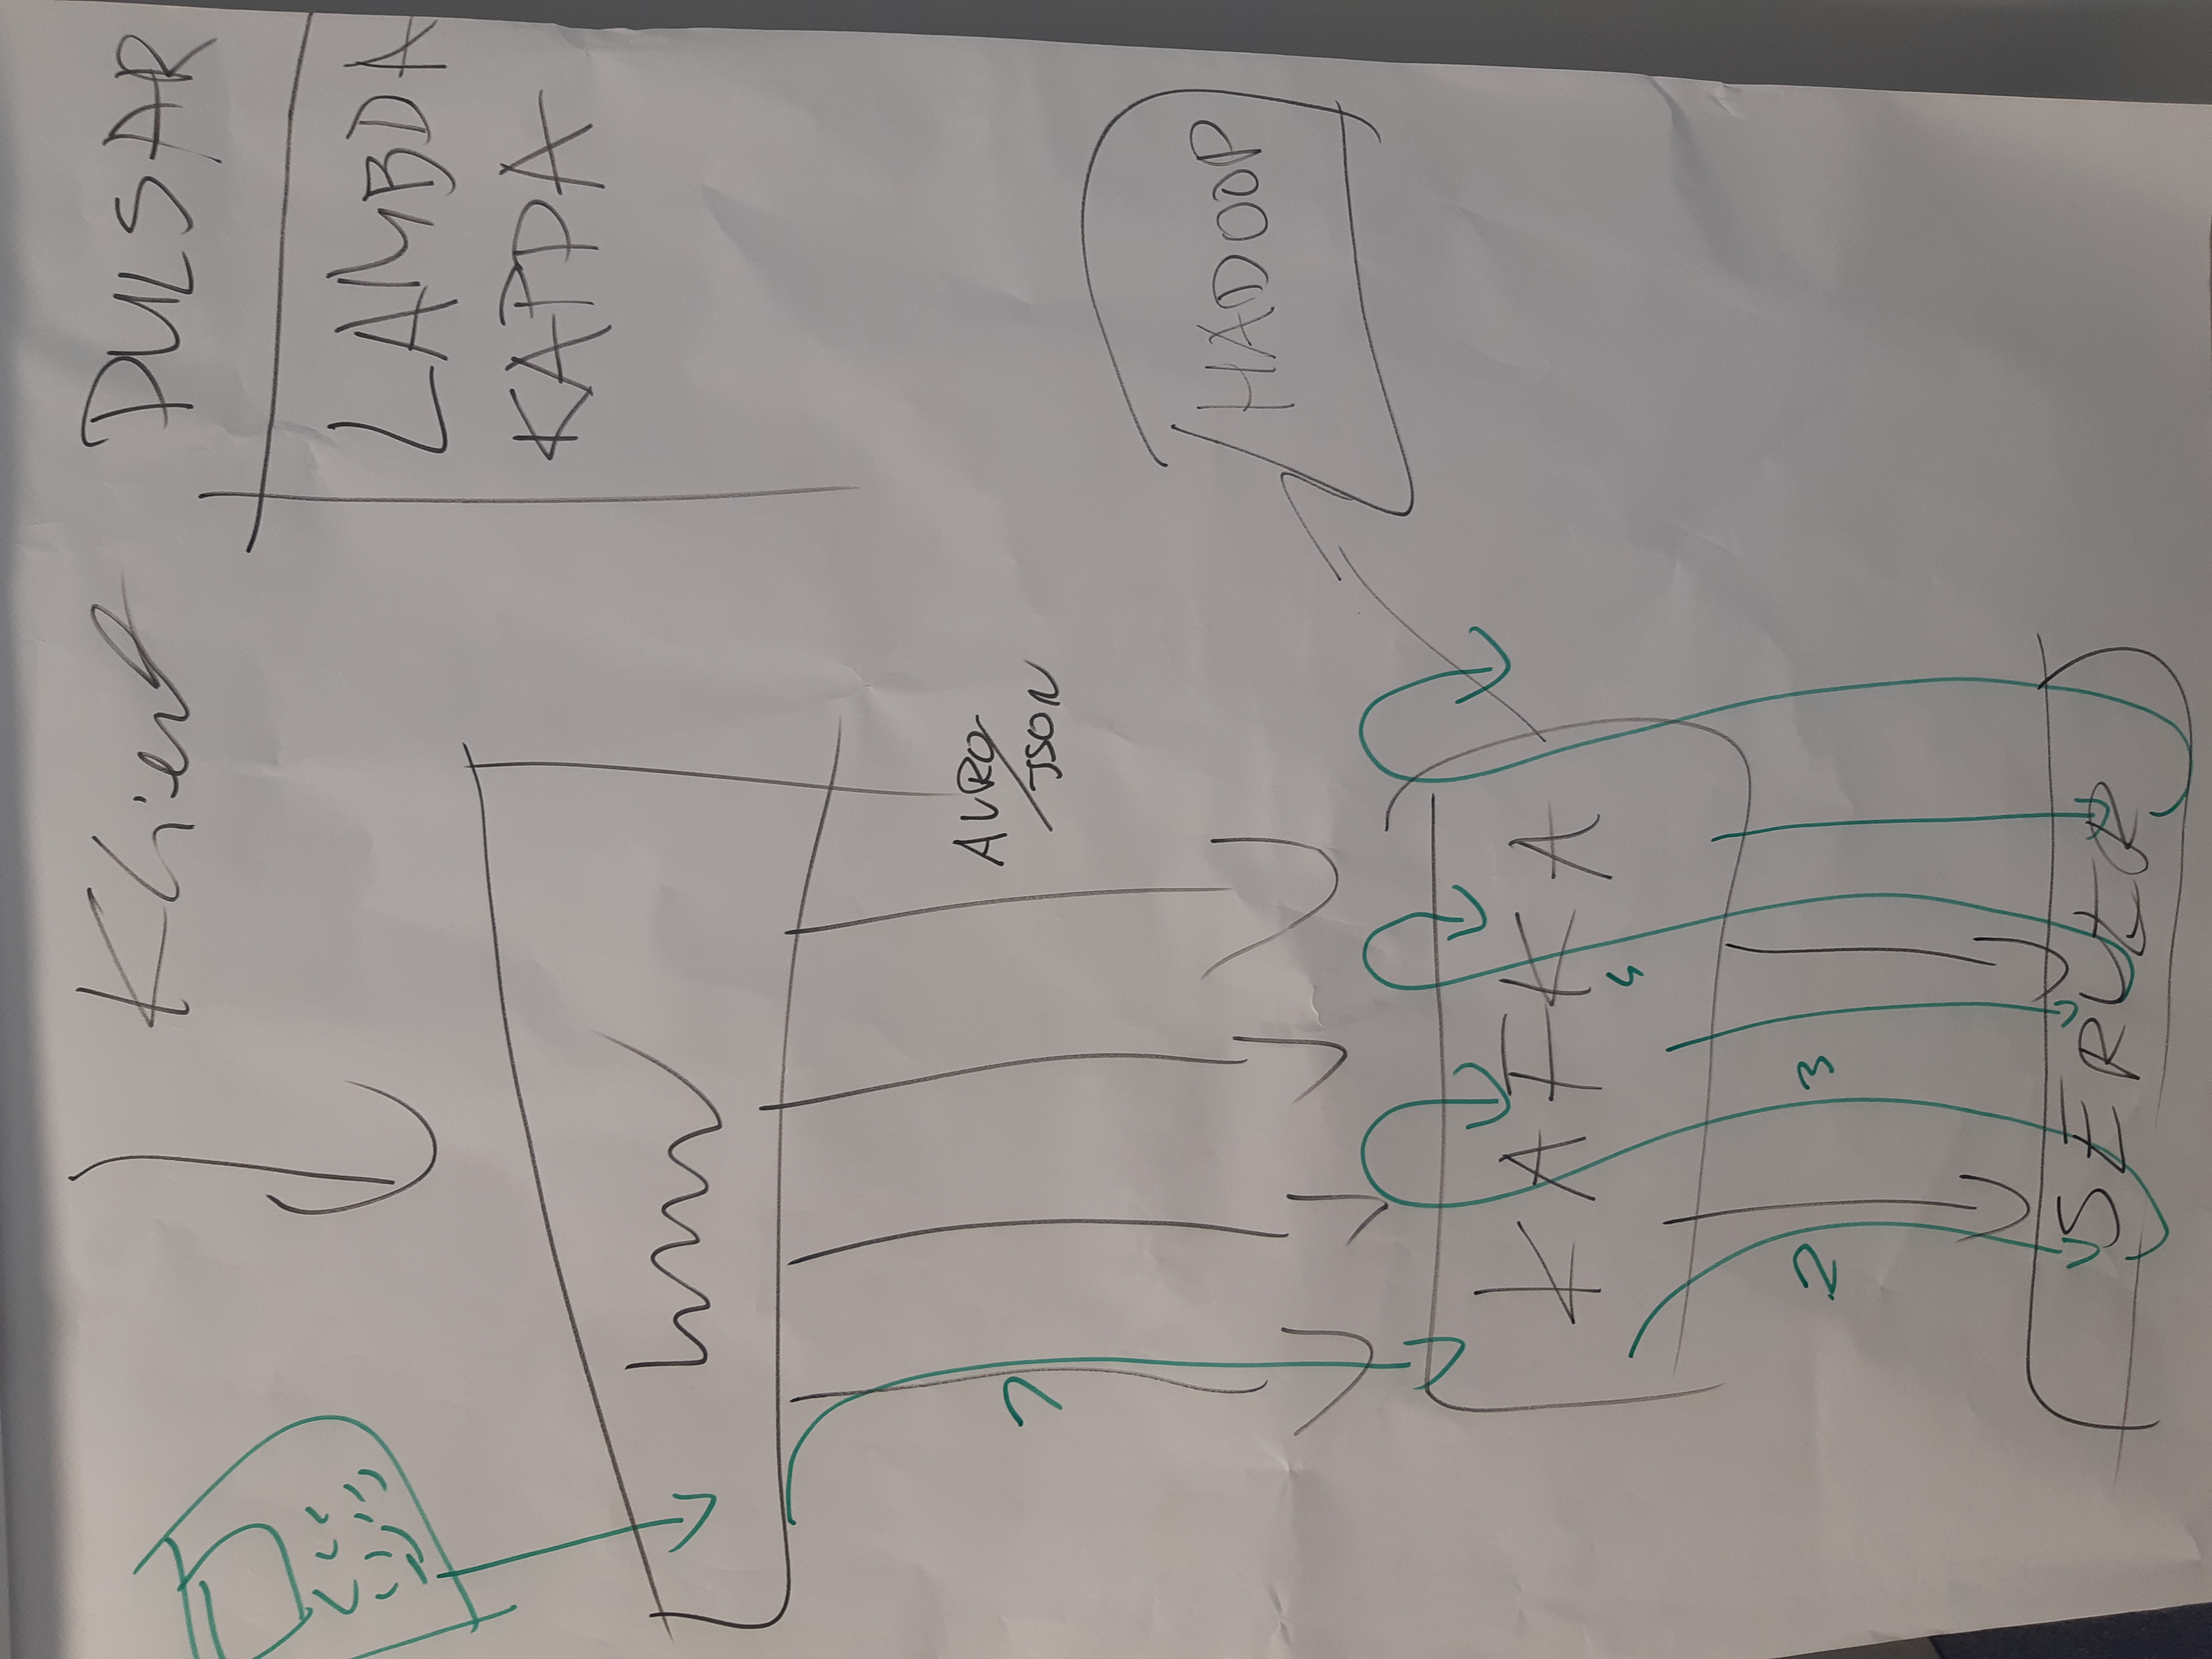 Klient
PULSAR
LAMBDA
KAPPA
www
1
AVRO
/JSON
HADOOP
KAFKA
4
2
3
SERVER